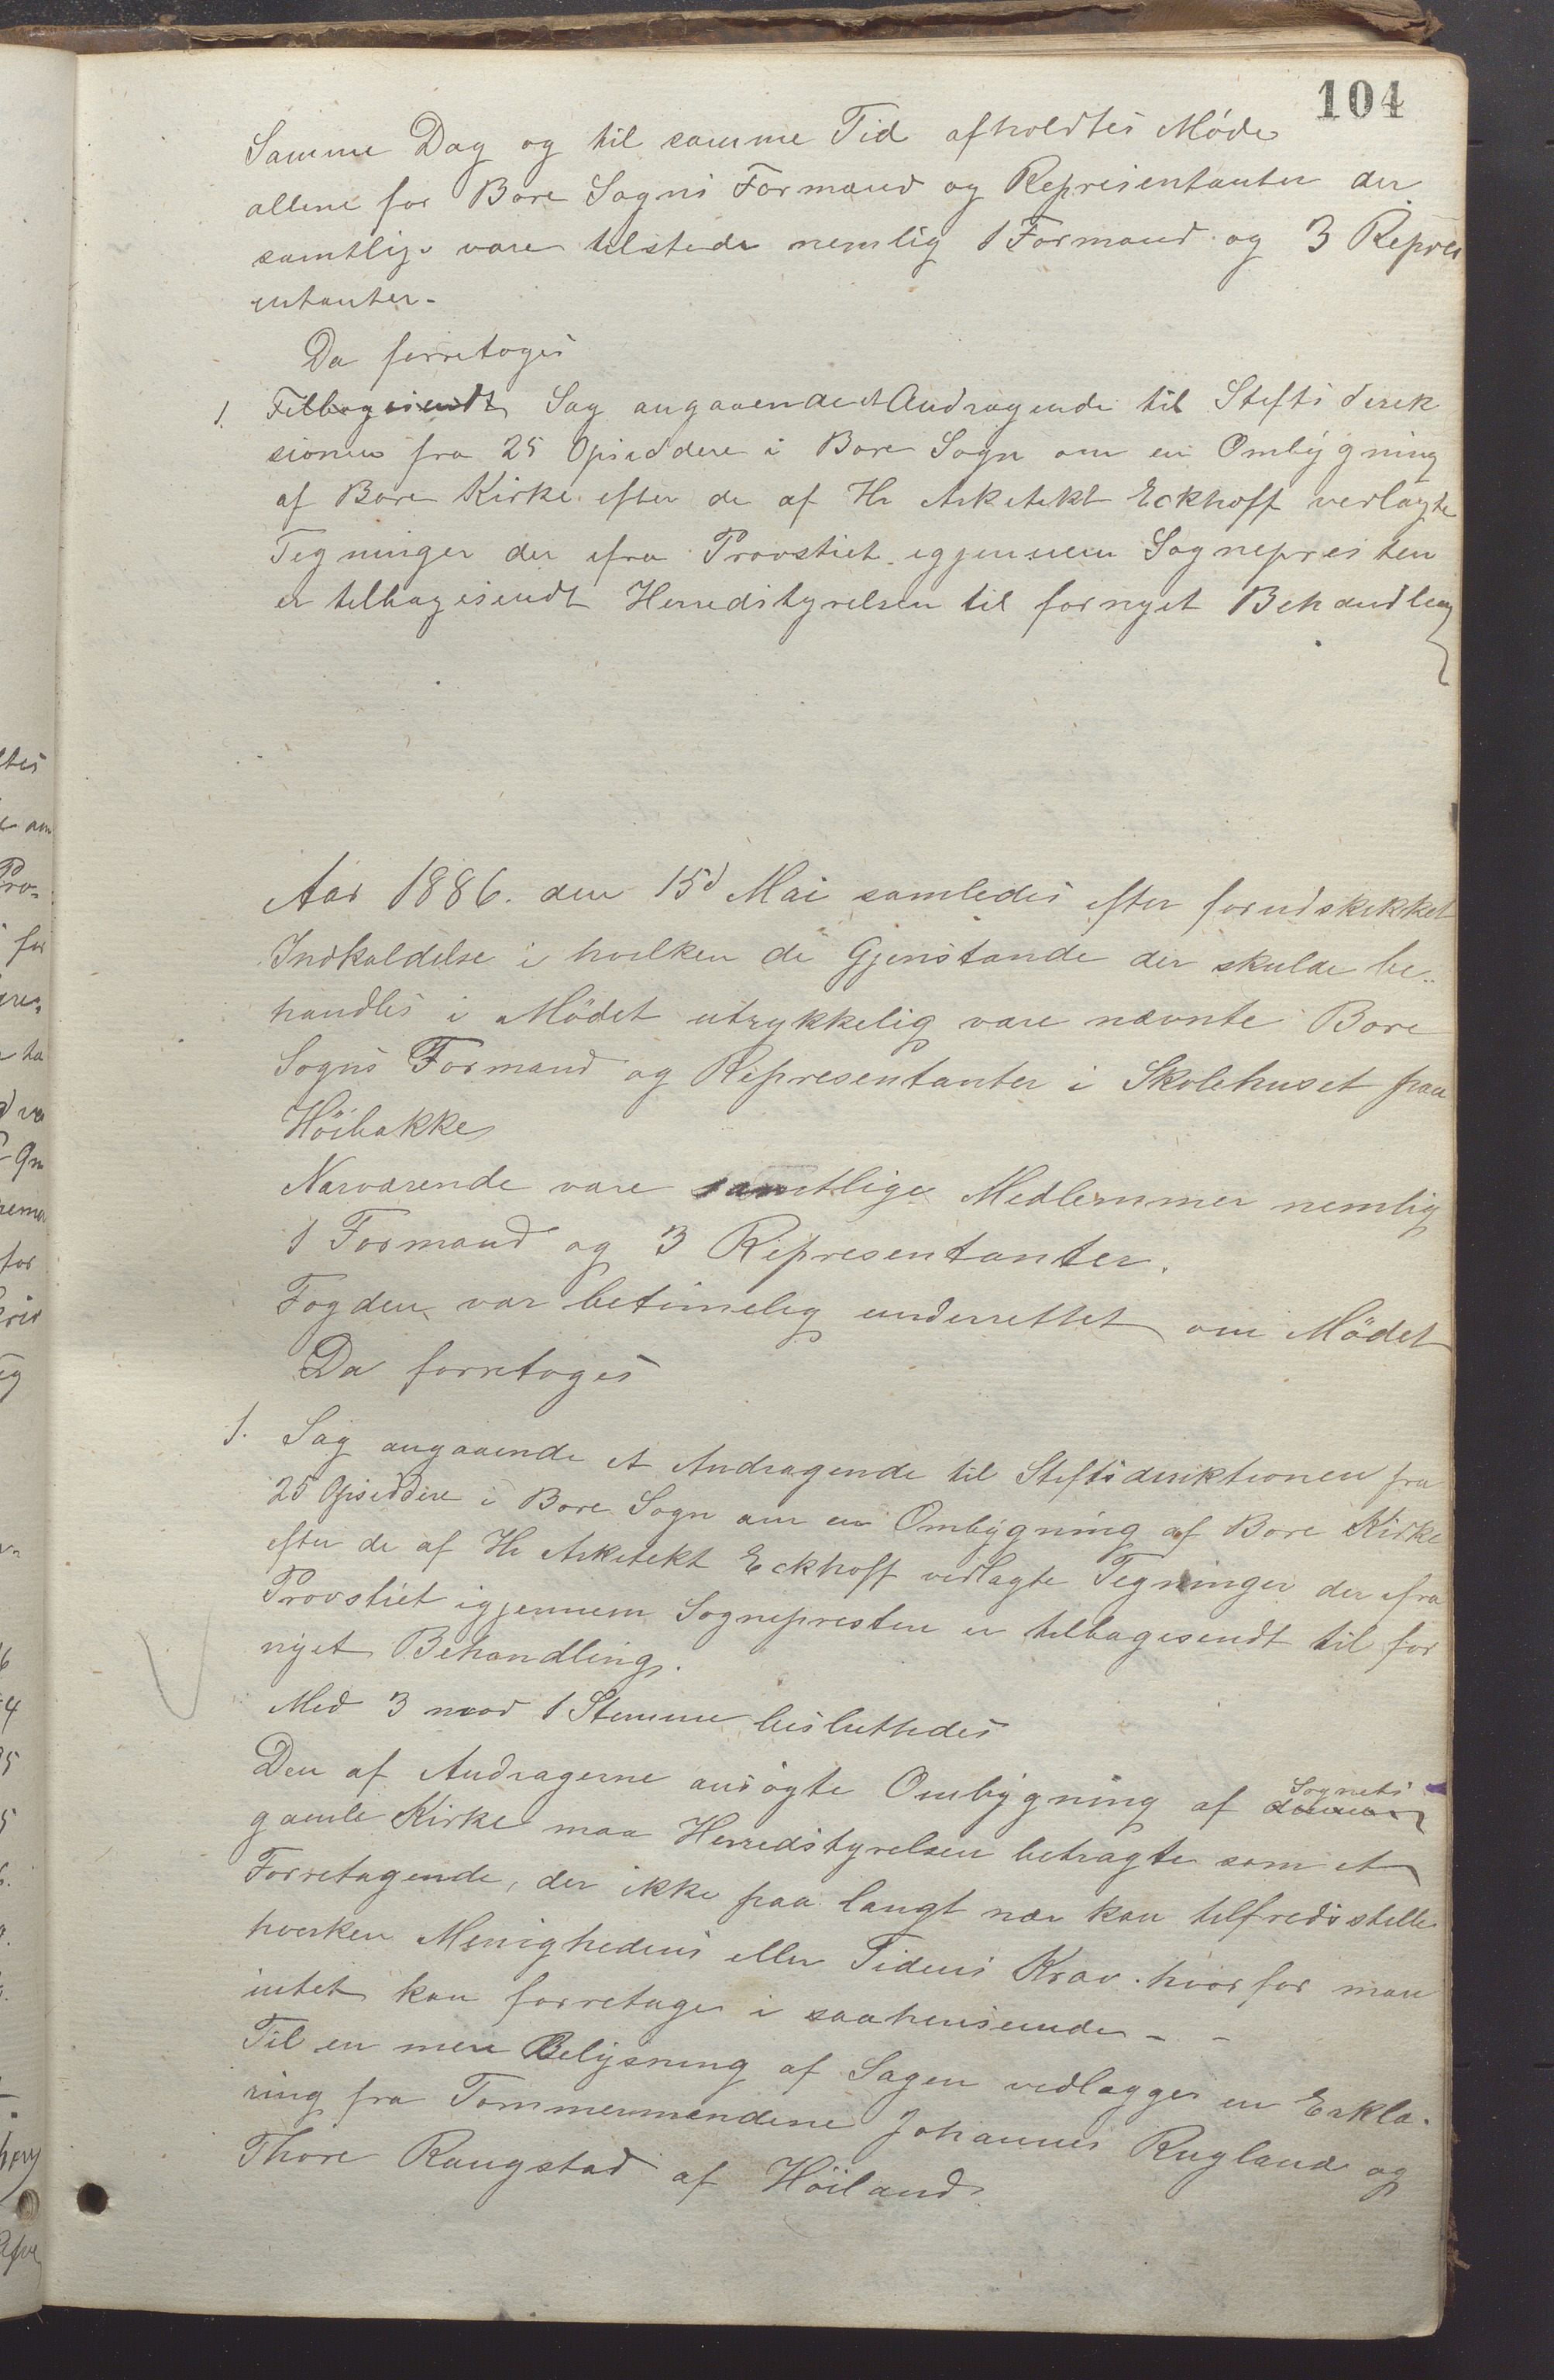 104
Samme Dag og til samme Tid afholdtes Møde
allene for Bore Sogns Formand og Representanter der
samtlige vare tilstede nemlig 1 Formand og 3 Repres
entanter-
Da forretoges
1. Tilbagesendt Sag angaaende et Andragende til Stiftsdirek
sionen fra 25 Opsiddere i Bore Sogn om en Ombygning
af Bore Kirke efter de af Hr Arkitekt Eckhoff vedlagte
Tegninger der ifra Provstiet igjennem Sognepresten
er tilbagesendt Herredstyrelsen til fornyet Behandling
Aar 1886. den 15d Mai samledes efter forudskikket
Indkaldelse i hvilken de Gjenstande der skulde be-
handles i Mödet utrykkelig vare nævnte Bore
Sogns Formand og Representanter i Skolehuset paa
Höibakke
Nærværende vare samtlige Medlemmer nemlig
1 Formand og 3 Representanter.
Fogden var betimelig underrettet om Mödet
Da forretoges
1. Sag angaaende et Andragende til Stiftsdirektionen fra
25 Opsiddere i Bore Sogn om en Ombygning af Bore Kirke
efter de af Hr Arkitekt Eckhoff vedlagte Tegninger der ifra
Provstiet igjennem Sognepresten er tilbagesendt til for
nyet Behandling.
Med 3 mod 1 Stemme besluttedes
Den af Andragerne ansögte Ombygning af Sognets
gamle Kirke maa Herredstyrelsen betragte som et
Forretagende, der ikke paa langt nær kan tilfredsstille
hverken Menighedens eller Tidens Krav. hvorfor man
intet kan forretage i saahenseende - -
Til en mere Belysning af Sagen vedlægges en Erklæ-
ring fra Tømmermændene Johannes Rugland og
Thore Raugstad af Höiland.